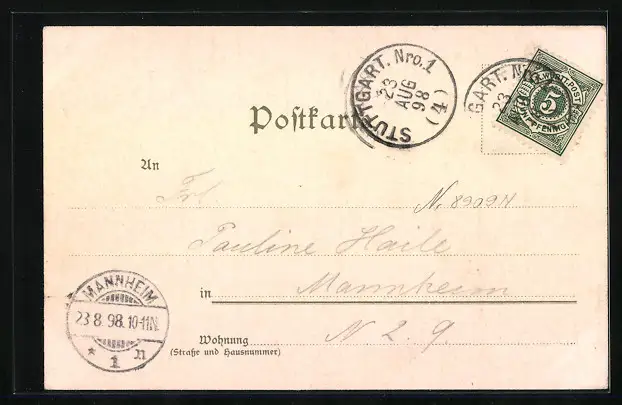 STUTTGART. Nro. 1
23
AUG
98
(4)
GART. Nro
23
K. WÜRTT. POST
5
PFENNIG
Postkarte
An
Frl
N. 89094
Pauline Haile
in Mannheim
MANNHEIM
23.8.98.10-11N.
* 1 n
Wohnung
(Straße und Hausnummer)
N 2 9